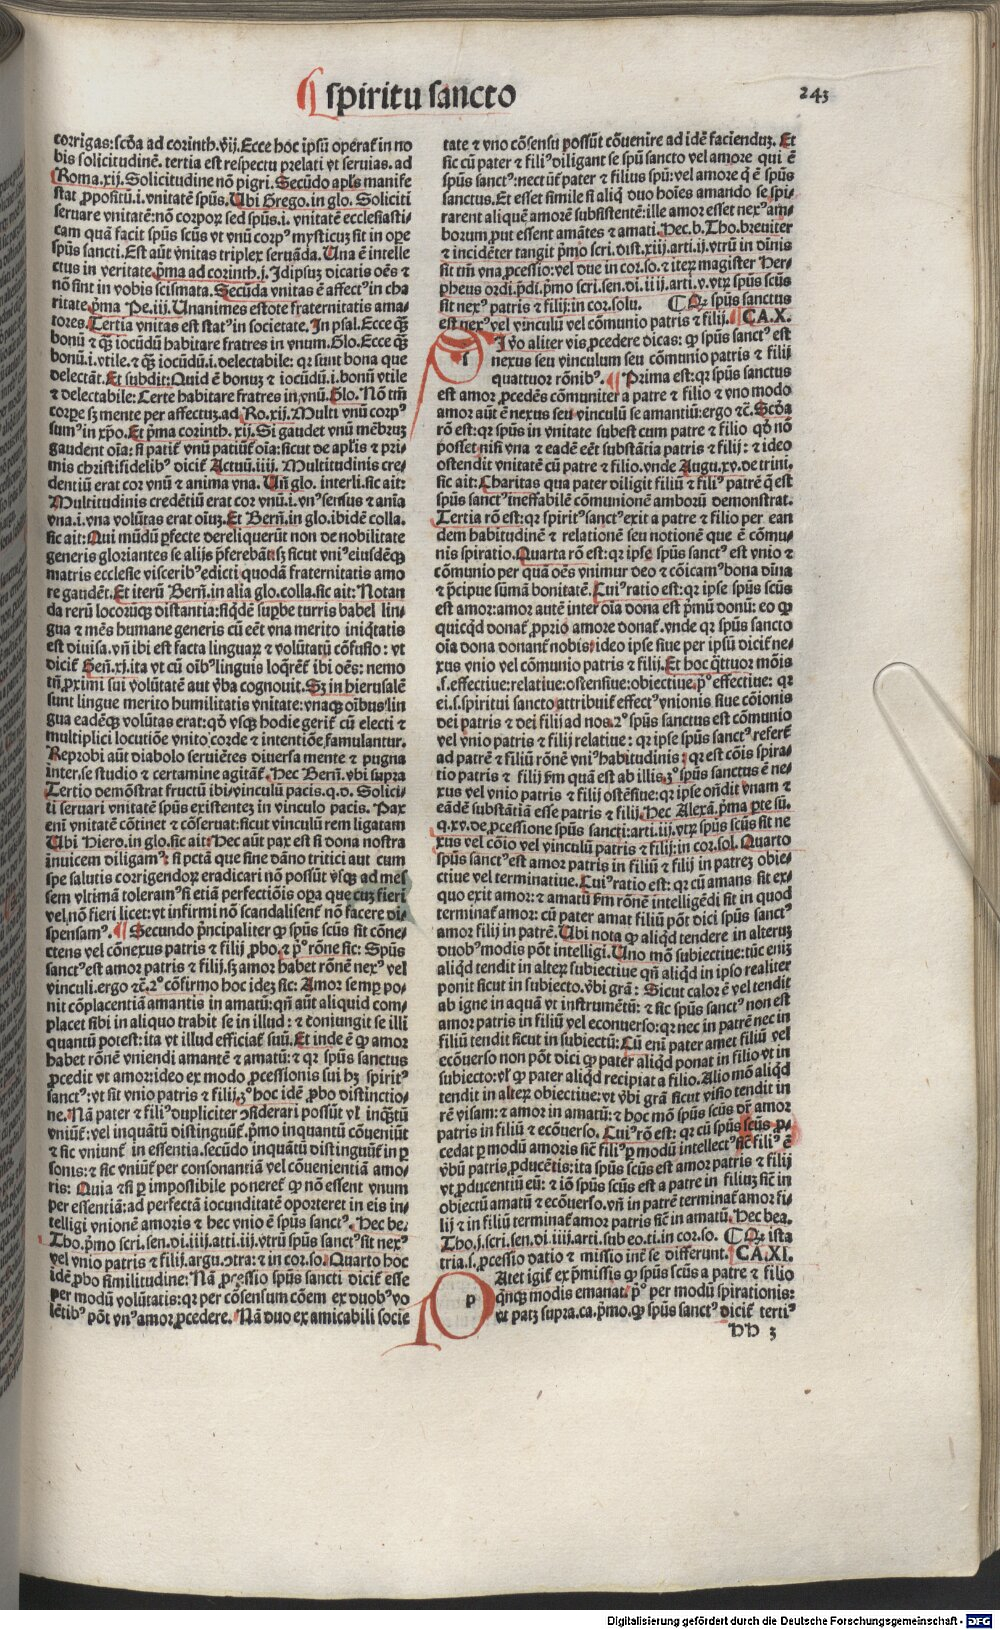 ¶ spiritu sancto
243
corrigas: scđa ad corinth. vij. Ecce hoc ipsũ operat̃ in no
bis solicitudinẽ. tertia est respectu prelati vt seruias. ad
Roma. xij. Solicitudine nõ pigri. Secũdo apl̃s manife
stat ꝓpositũ. i. vnitatẽ spũs. Ubi Grego. in glo. Soliciti
seruare vnitatẽ: nõ corpoꝝ sed spũs. i. vnitatẽ ecclesiasti-
cam quã facit spũs scũs vt vnũ corpꝰ mysticuꝫ sit in oꝑe
spũs sancti. Est aũt vnitas triplex seruãda. Una ẽ intelle
ctus in veritate. p̃ma ad corinth. j. Idipsuꝫ dicatis oẽs ⁊
nõ sint in vobis scismata. Secũda vnitas ẽ affectꝰ in cha
ritate. p̃ma Pe. iij. Unanimes estote fraternitatis ama-
tores. Tertia vnitas est statꝰ in societate. In psal. Ecce q̃ꝫ
bonũ ⁊ q̃ꝫ iocũdũ habitare fratres in vnum. Glo. Ecce q̃ꝫ
bonũ. i. vtile. ⁊ q̃ꝫ iocũdũ. i. delectabile: qꝛ sunt bona que
delectãt. Et subdit: Quid ẽ bonuꝫ ⁊ iocũdũ. i. bonũ vtile
⁊ delectabile: Certe habitare fratres in vnũ. Glo. Nõ tm̃
corpe sꝫ mente per affectuꝫ. ad Ro. xij. Multi vnũ corpꝰ
sumꝰ in xp̃o. Et p̃ma corinth. xij. Si gaudet vnũ mẽbruꝫ
gaudent oĩa: si patit̃ vnũ patiũt̃ oĩa: sicut de apl̃is ⁊ pri-
mis christifidelibꝰ dicit̃ Actuũ. iiij. Multitudinis cre-
dentiũ erat cor vnũ ⁊ anima vna. Uñ glo. interli. sic ait:
Multitudinis credẽtiũ erat cor vnũ. i. vnꝰ sensus ⁊ anĩa
vna. i. vna volũtas erat oĩuꝫ. Et Berñ. in glo. ibidẽ colla.
sic ait: Qui mũdũ ꝑfecte dereliquerũt non de nobilitate
generis gloriantes se alijs p̃ferebãt: sꝫ sicut vniꝰ eiusdẽqꝫ
matris ecclesie visceribꝰ edicti quodã fraternitatis amo
re gaudẽt. Et iterũ Berñ. in alia glo. colla. sic ait: Notan
da rerũ locorũqꝫ distantia: siq̃dẽ suꝑbe turris babel lin-
gua ⁊ mẽs humane generis cũ eẽt vna merito iniq̃tatis
est diuisa. vñ ibi est facta linguaꝝ ⁊ volũtatũ cõfusio: vt
dicit̃ Geñ. xj. ita vt cũ oĩbꝰ linguis loq̃rẽt̃ ibi oẽs: nemo
tñ ꝓximi sui volũtatẽ aut ṽba cognouit. Sꝫ in hierusalẽ
sunt lingue merito humilitatis vnitate: vnaqꝫ oĩbus lin
gua eadẽqꝫ volũtas erat: qđ vsqꝫ hodie gerit̃ cũ electi ⁊
multiplici locutiõe vnito corde ⁊ intentiõe famulantur.
Reprobi aũt diabolo seruiẽtes diuersa mente ⁊ pugna
inter se studio ⁊ certamine agitãt̃. Hec Berñ. vbi supra
Tertio demõstrat fructũ ibi: vinculũ pacis. q. d. Solici-
ti seruari vnitatẽ spũs existenteꝫ in vinculo pacis. Pax
eni vnitatẽ cõtinet ⁊ cõseruat: sicut vinculũ rem ligatam
Ubi Hiero. in glo. sic ait: Hec aũt pax est si dona nostra
inuicem diligamꝰ: si pctã que sine dãno tritici aut cum
spe salutis corrigendoꝝ eradicari nõ possũt vsqꝫ ad mes
sem vltimã toleramꝰ si etiã perfectiõis opa que cuꝫ fieri
vel nõ fieri licet: vt infirmi nõ scandalisent̃ nõ facere di-
spensamꝰ. ¶ Secundo p̃ncipaliter qꝫ spũs scũs sit cõne-
ctens vel cõnexus patris ⁊ filij ꝓbo. ⁊ pͦ rõne sic: Spũs
sanctꝰ est amor patris ⁊ filij. sꝫ amor habet rõnẽ nexꝰ vel
vinculi. ergo ⁊c̃. 2ͦ cõfirmo hoc ideꝫ sic: Amor semꝑ po-
nit cõplacentiã amantis in amatũ: qñ aũt aliquid com-
placet sibi in aliquo trahit se in illud: ⁊ coniungit se illi
quantũ potest: ita vt illud efficiat̃ suũ. Et inde ẽ ꝙ amor
habet rõnẽ vniendi amantẽ ⁊ amatũ: ⁊ qꝛ spũs sanctus
ꝓcedit vt amor: ideo ex modo ꝓcessionis sui hꝫ spiritꝰ
sanctꝰ: vt sit vnio patris ⁊ filij. 3ͦ hoc idẽ ꝓbo distinctio-
ne. Nã pater ⁊ filiꝰ dupliciter ꝯsiderari possũt vl̃ inq̃ꝫtũ
vniũt̃: vel inquãtũ distinguũt̃. p̃mo inquantũ cõueniũt
⁊ sic vniunt̃ in essentia. secũdo inquãtũ distinguũt̃ in ꝑ
sonis: ⁊ sic vniũt̃ per consonantiã vel cõuenientiã amo-
ris: Quia ⁊ si ꝑ impossibile poneret̃ ꝙ nõ essent vnum
per essentiã: ad perfectã iocunditatẽ oporteret in eis in-
telligi vnionẽ amoris ⁊ hec vnio ẽ spũs sanctꝰ. Hec be.
Tho. p̃mo scri. sen. di. iiij. arti. iij. vtrũ spũs sanctꝰ sit nexꝰ
vel vnio patris ⁊ filij. argu. ꝯtra: ⁊ in cor. so. Quarto hoc
idẽ ꝓbo similitudine: Nã ꝓcessio spũs sancti dicit̃ esse
per modũ volũtatis: qꝛ per cõsensum cõem ex duobꝰ vo
lẽtibꝰ põt vnꝰ amor ꝓcedere. Nã duo ex amicabili socie
tate ⁊ vno cõsensu possũt cõuenire ad idẽ faciendũꝫ. Et
sic cũ pater ⁊ filiꝰ diligant se spũ sancto vel amore qui ẽ
spũs sanctꝰ: nectũt̃ pater ⁊ filius spũ: vel amore q̃ ẽ spũs
sanctus. Et esset simile si aliq̃ duo hoĩes amando se spi-
rarent aliquẽ amorẽ subsistentẽ: ille amor esset nexꝰ am-
borum prout essent amãtes ⁊ amati. Hec. b. Tho. breuiter
⁊ incidẽter tangit p̃mo scri. dist. xiij. arti. ij. vtrũ in diuinis
sit tm̃ vna ꝓcessio: vel due in cor. so. ⁊ iteꝝ magister Her-
pheus ordi. p̃di. p̃mo scri. sen. di. iiij. arti. v. vtꝝ spũs scũs
sit nexꝰ patris ⁊ filij: in cor. solu. ¶ Qꝛ spũs sanctus
est nexꝰ vel vinculũ vel cõmunio patris ⁊ filij. ¶ CA. X.
SI ṽo aliter vis ꝓcedere dicas: ꝙ spũs sanctꝰ est
nexus seu vinculum seu cõmunio patris ⁊ filij
quattuor rõnibꝰ. ¶ Prima est: qꝛ spũs sanctus
est amor ꝓcedẽs cõmuniter a patre ⁊ filio ⁊ vno modo
amor aũt ẽ nexus seu vinculũ se amantiũ: ergo ⁊c̃. Scđa
rõ est: qꝛ spũs in vnitate subest cum patre ⁊ filio qđ nõ
posset nisi vna ⁊ eadẽ eẽt substãtia patris ⁊ filij: ⁊ ideo
ostendit vnitatẽ cũ patre ⁊ filio. vnde Augu. xv. de trini.
sic ait: Charitas qua pater diligit filiũ ⁊ filiꝰ patrẽ q̃ est
spũs sanctꝰ ineffabilẽ cõmunionẽ amborũ demonstrat.
Tertia rõ est: qꝛ spiritꝰ sanctꝰ exit a patre ⁊ filio per ean
dem habitudinẽ ⁊ relationẽ seu notionẽ que ẽ cõmu-
nis spiratio. Quarta rõ est: qꝛ ipse spũs sanctꝰ est vnio ⁊
cõmunio per quã oẽs vnimur deo ⁊ cõicamꝰ bona diuina
⁊ p̃cipue sũmã bonitatẽ. Cuiꝰ ratio est: qꝛ ipse spũs scũs
est amor: amor autẽ inter oĩa dona est p̃mũ donũ: eo ꝙ
quicq̃d donat̃ ꝓprio amore donat̃. vnde qꝛ spũs sancto
oĩa dona donant̃ nobis: ideo ipse siue per ipsũ dicit̃ ne-
xus vnio vel cõmunio patris ⁊ filij. Et hoc q̃ttuor mõis
.s. effectiue: relatiue: ostensiue: obiectiue. pͦ effectiue: qꝛ
ei. s. spiritui sancto attribuit̃ effectꝰ vnionis siue cõionis
dei patris ⁊ dei filij ad nos. 2ͦ spũs sanctus est cõmunio
vel vnio patris ⁊ filij relatiue: qꝛ ipse spũs sanctꝰ refert̃
ad patrẽ ⁊ filiũ rõnẽ vniꝰ habitudinis: qꝛ est cõis spira-
tio patris ⁊ filij fm quã est ab illis. 3ͦ spũs sanctus ẽ ne-
xus vel vnio patris ⁊ filij ostẽsiue: qꝛ ipse oñdit vnam ⁊
eãdẽ substãtiã esse patris ⁊ filij. Hec Alexã. p̃ma ꝑte sũ.
q. xv. de ꝓcessione spũs sancti: arti. iij. vtꝝ spũs scũs sit ne
xus vel cõio vel vinculũ patris ⁊ filij: in cor. sol. Quarto
spũs sanctꝰ est amor patris in filiũ ⁊ filij in patreꝫ obie-
ctiue vel terminatiue. Cuiꝰ ratio est: qꝛ cũ amans sit ex-
quo exit amor: ⁊ amatũ fm rõnẽ intelligẽdi sit in quod
terminat̃ amor: cũ pater amat filiũ põt dici spũs sanctꝰ
amor filij in patrẽ. Ubi nota ꝙ aliq̃d tendere in alteruꝫ
duobꝰ modis põt intelligi. Uno mõ subiectiue: tũc eniꝫ
aliq̃d tendit in alteꝝ subiectiue qñ aliq̃d in ipso realiter
ponit sicut in subiecto. ṽbi grã: Sicut calor ẽ vel tendit
ab igne in aquã vt instrumẽtũ: ⁊ sic spũs sanctꝰ non est
amor patris in filiũ vel econuerso: qꝛ nec in patrẽ nec in
filiũ tendit sicut in subiectũ: Cũ eni pater amet filiũ vel
ecõuerso non põt dici ꝙ pater aliq̃d ponat in filio vt in
subiecto: vl̃ ꝙ pater aliq̃d recipiat a filio. Alio mõ aliq̃d
tendit in alteꝝ obiectiue: vt ṽbi grã sicut visio tendit in
rẽ visam: ⁊ amor in amatũ: ⁊ hoc mõ spũs scũs dr̃ amor
patris in filiũ ⁊ ecõuerso. Cuiꝰ rõ est: qꝛ cũ spũs scũs ꝓ-
cedat ꝑ modũ amoris sic̃ filiꝰ ꝑ modũ intellectꝰ sic̃ filiꝰ ẽ
ṽbũ patris ꝓducẽtis: ita spũs scũs est amor patris ⁊ filij
vt ꝓducentiũ eũ: ⁊ iõ spũs scũs est a patre in filiuꝫ sic̃ in
obiectũ amatũ ⁊ ecõuerso. vñ in patrẽ terminat̃ amor fi-
lij ⁊ in filiũ terminat̃ amor patris sic̃ in amatũ. Hec bea.
Tho. j. scri. sen. di. iiij. arti. sub eo. ti. in cor. so. ¶ Qꝛ ista
tria. s. ꝓcessio datio ⁊ missio int̃ se differunt. ¶ CA. XI.
PAtet igit̃ ex p̃missis ꝙ spũs scũs a patre ⁊ filio
q̃nqꝫ modis emanat. pͦ per modũ spirationis:
vt patꝫ supra. ca. p̃mo. ꝙ spũs sanctꝰ dicit̃ tertiꝰ
HH 3
Digitalisierung gefördert durch die Deutsche Forschungsgemeinschaft - DFG